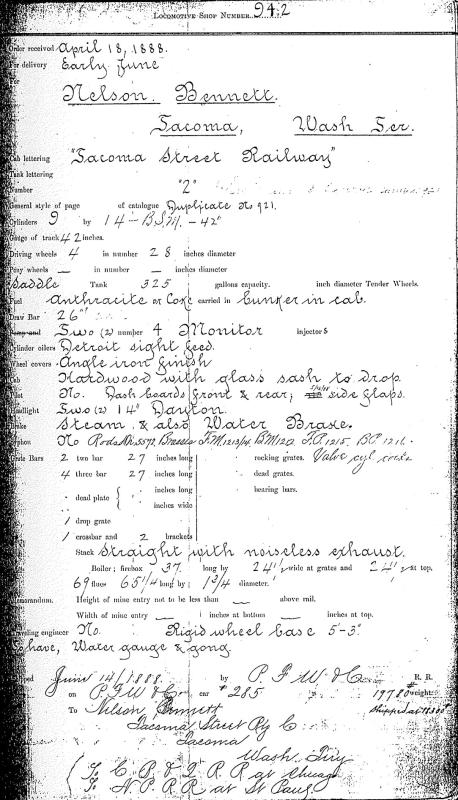 Locomotive Shop Number 942
Order received April 18, 1888.
For delivery Early June
Nelson Bennett.
Tacoma, Wash Ter.
Cab lettering "Tacoma Street Railway"
Tank lettering
Number "2"
General style of page of catalogue Duplicate No 921.
Cylinders 9 by 14 - B.S.M. - 42"
Gauge of track 42 inches.
Driving wheels 4 in number 28 inches diameter
Pony wheels — in number — inches diameter
Saddle Tank 325 gallons capacity. inch diameter Tender Wheels.
Fuel Anthracite or Coke carried in bunker in cab.
Draw Bar 26"
Two (2) number 4 Monitor injectors
Cylinder oilers Detroit sight feed.
Wheel covers Angle iron finish
Cab Hardwood with glass sash to drop
Pilot No. Dash boards front & rear; side flaps.
Headlight Two (2) 14" Dayton.
Brake Steam & also Water Brake.
Syphon No Rods
Grate Bars 2 two bar 27 inches long rocking grates. Valve cyl cocks
4 three bar 27 inches long dead grates.
dead plate { inches long bearing bars.
inches wide
1 drop grate
1 crossbar and 2 brackets
Stack Straight with noiseless exhaust.
Boiler; firebox 37 long by 24 1/2 wide at grates and 24" at top.
69 flues 65 1/4 long by; 1 3/4 diameter.
Memorandum. Height of mine entry not to be less than — above rail.
Width of mine entry — inches at bottom — inches at top.
Travelling engineer No. Rigid wheel base 5'-3"
To have, Water gauge & gong.
Shipped June 14/1888. by P. F W. & C R. R.
on P F W & C car # 285 19780 # weight.
To Nelson Bennett shipped at
Tacoma Street Ry Co
Tacoma
Wash Tiry
To C. B. & Q R. R at Chicago
To N. P. R R at St Paul